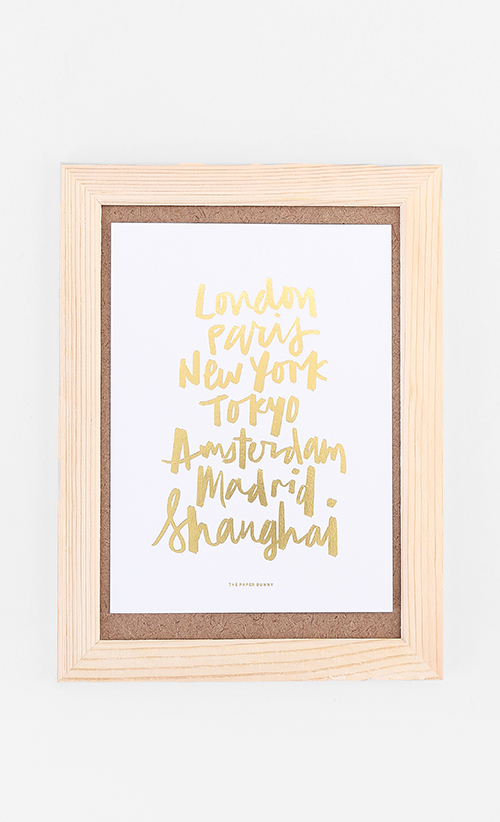 London
Paris
New York
Tokyo
Amsterdam
Madrid
Shanghai
THE PAPER BUNNY